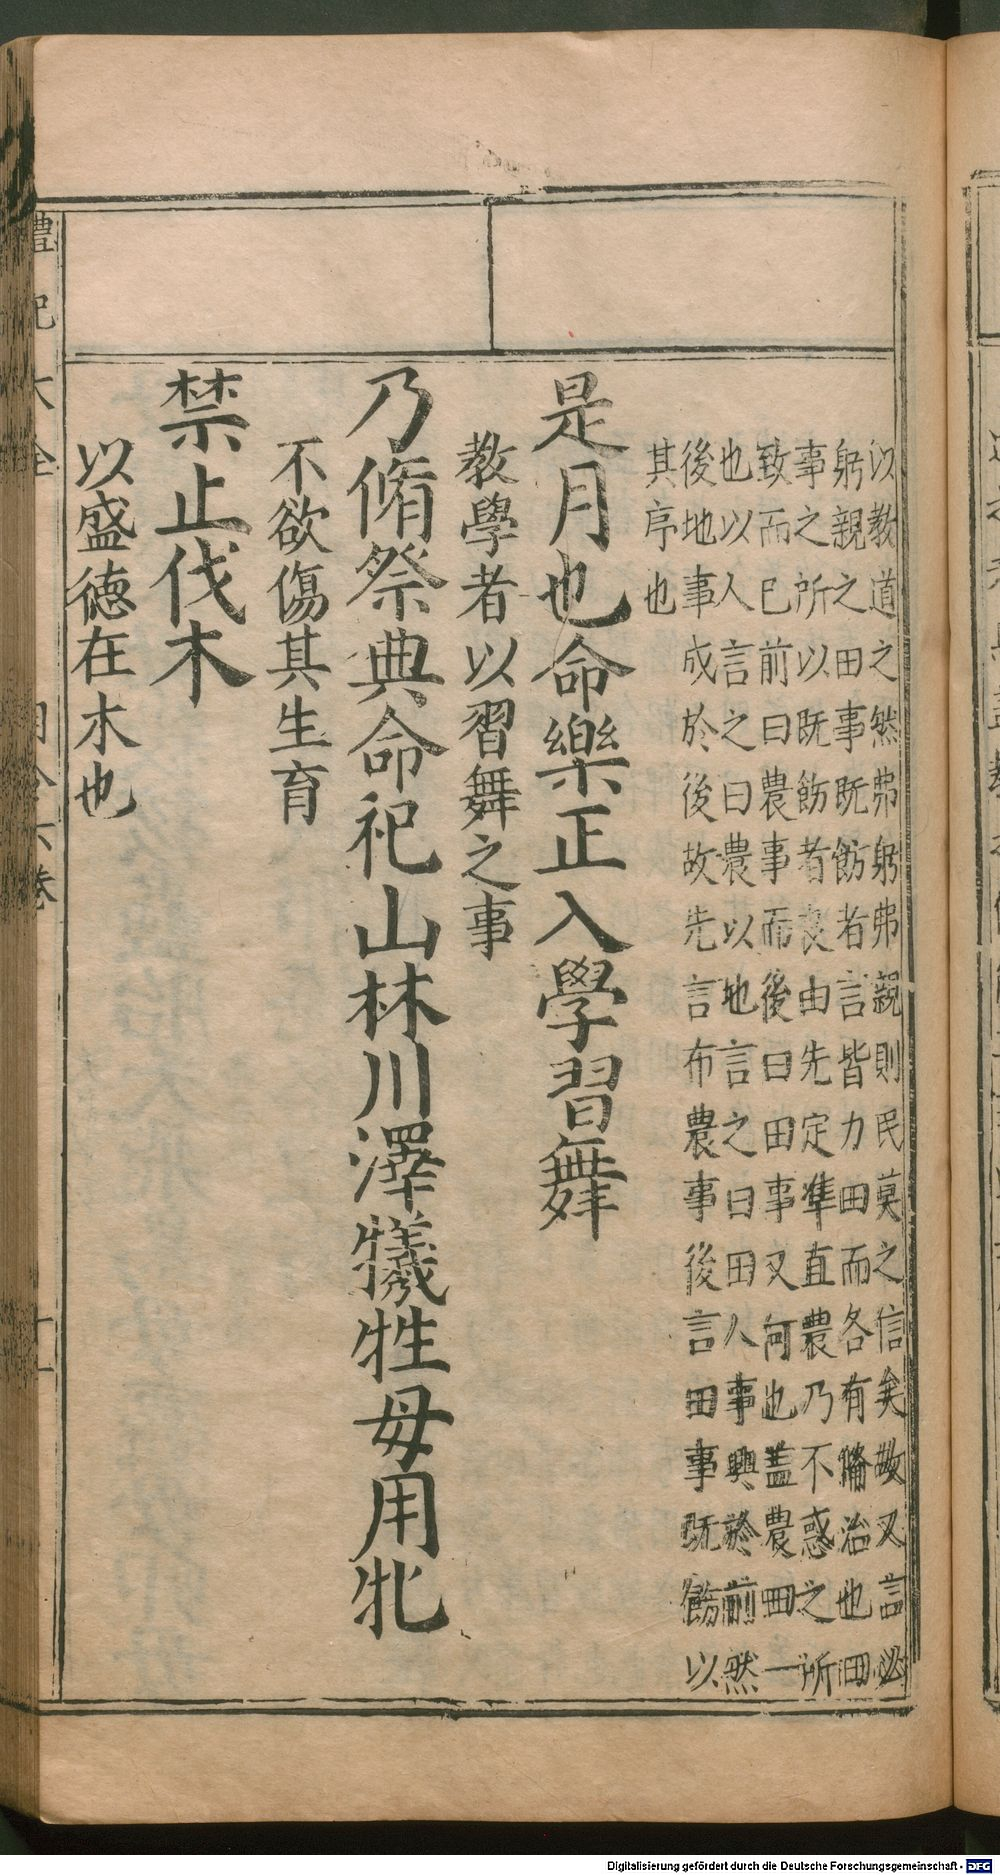 以教道之然弗躬弗親則民莫之信矣故又言必
躬親之田事既飭者言皆力田而各有脩治也田
事之所以既飭者良由先定準直農乃不惑之所
致而已前曰農事而後曰田事又何也蓋農田一
也以人言之曰農以地言之曰田人事興於前然
後地事成於後故先言布農事後言田事既飭以
其序也
是月也命樂正入學習舞
教學者以習舞之事
乃脩祭典命祀山林川澤犧牲毋用牝
不欲傷其生育
禁止伐木
以盛德在木也
禮記大全
月令六卷
Digitalisierung gefördert durch die Deutsche Forschungsgemeinschaft - DFG